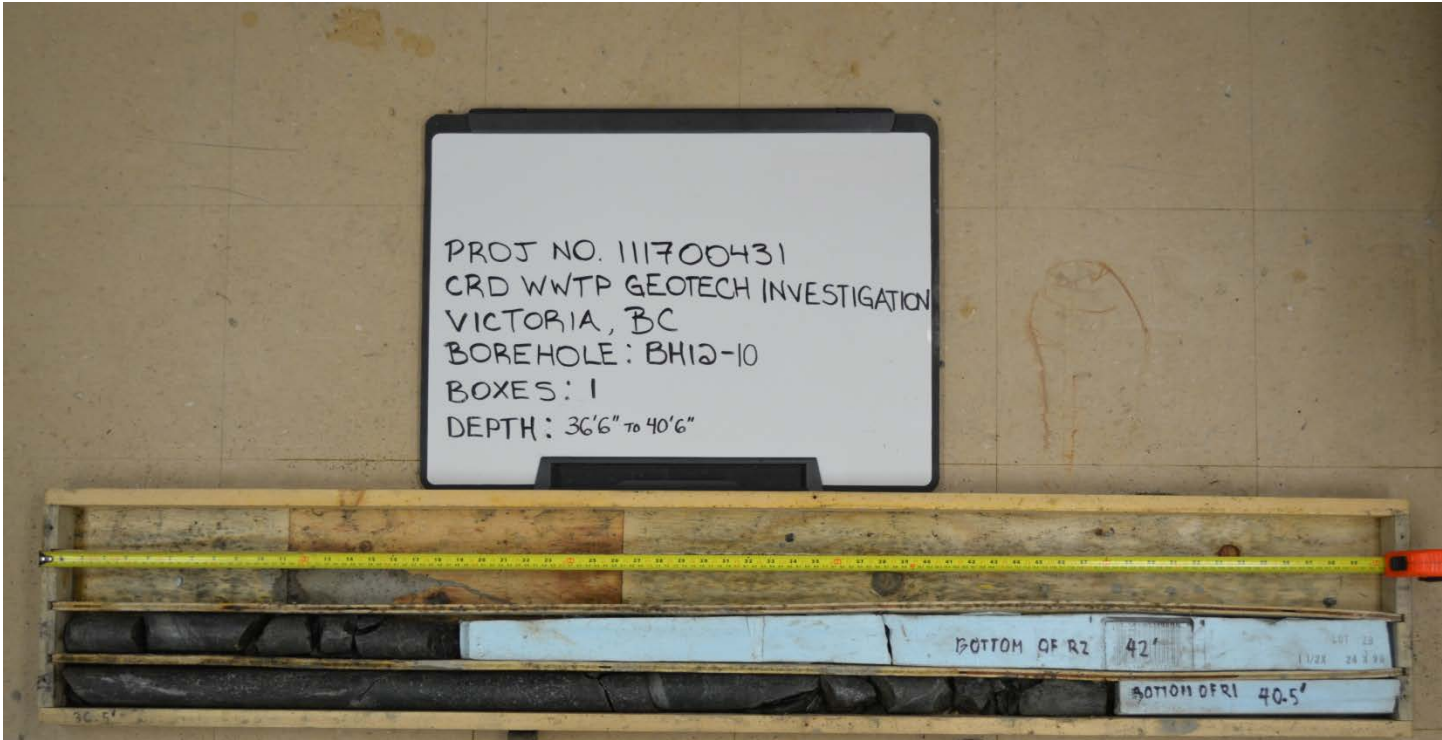 PROJ NO. 111700431
CRD WWTP GEOTECH INVESTIGATION
VICTORIA, BC
BOREHOLE: BH12-10
BOXES: 1
DEPTH: 36'6" TO 40'6"
BOTTOM OF R2 42'
LOT 29
BOTTOM OF R1 40.5'
36.5'